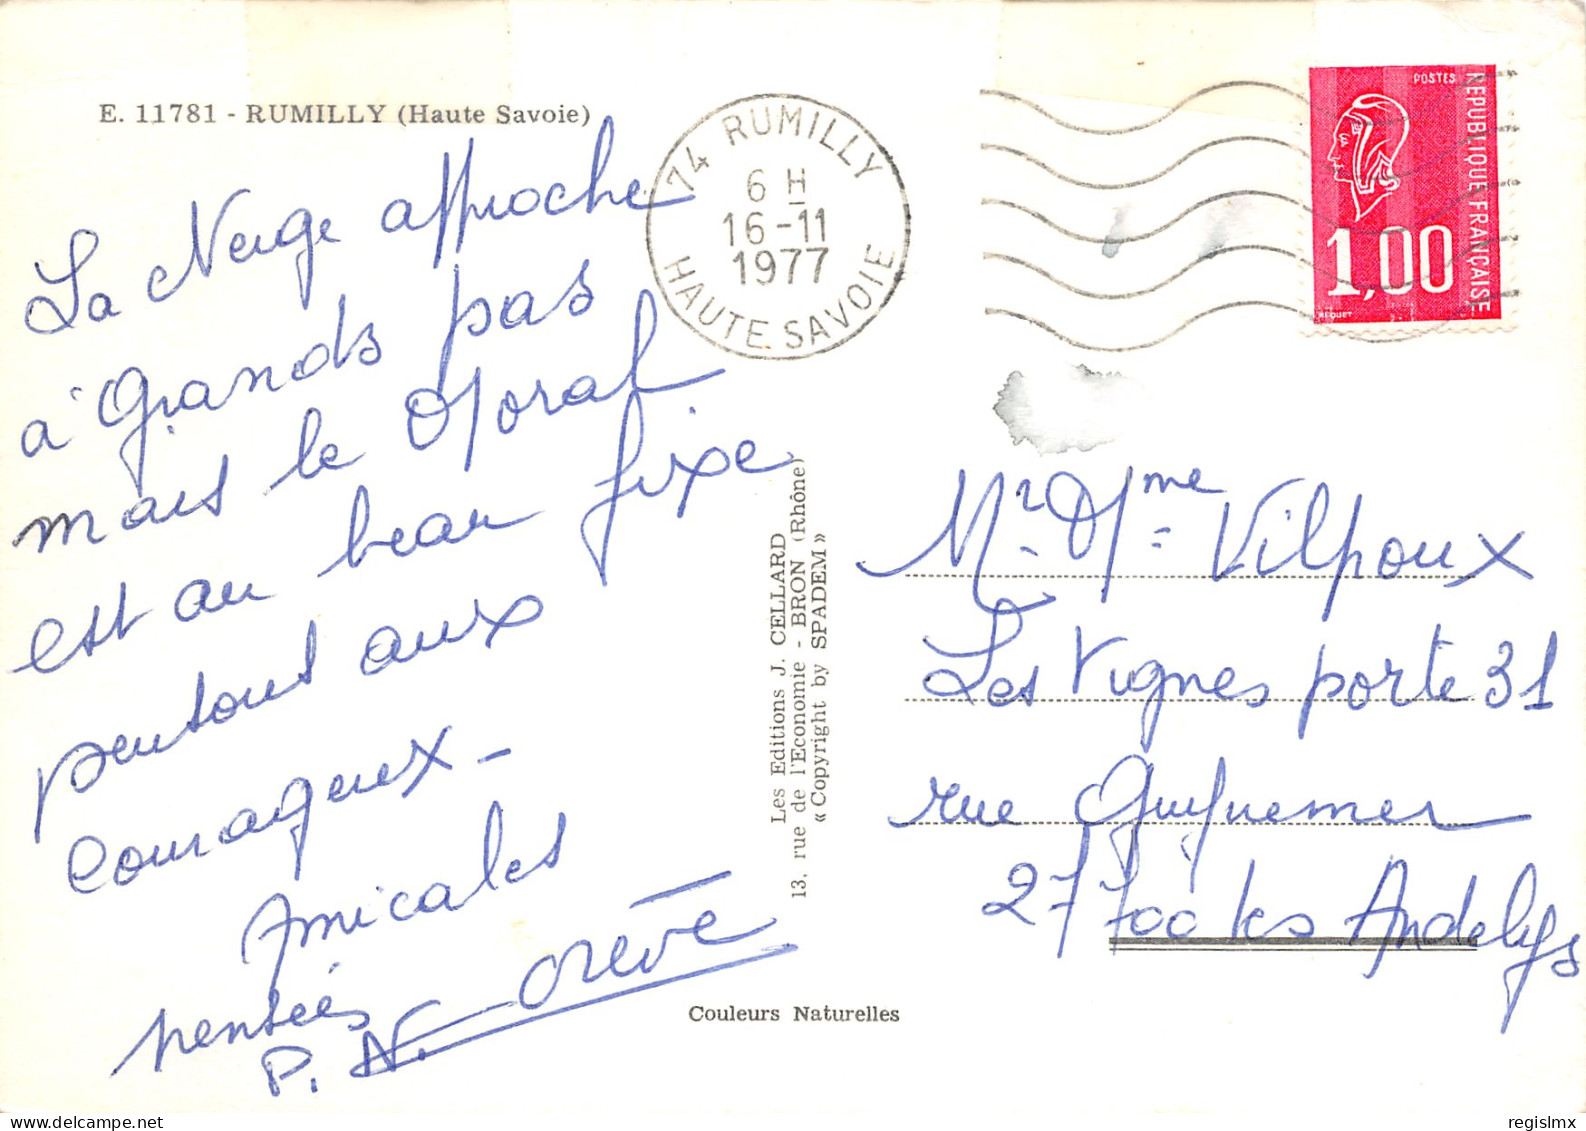 E. 11781 - RUMILLY (Haute Savoie)
La Neige approche
à Grands pas
mais le Moral
est au beau fixe
pensons aux
Courageux -
Amicales
pensées
74 RUMILLY
6 H
16-11
1977
HAUTE SAVOIE
POSTES
REPUBLIQUE FRANÇAISE
1,00
BEQUET
Les Editions J. CELLARD
13, rue de l'Economie - BRON (Rhône)
« Copyright by SPADEM »
Couleurs Naturelles
Mr. Mme Vilpoux
Les Vignes porte 31
rue Guynemer
27700 les Andelys
regislmx